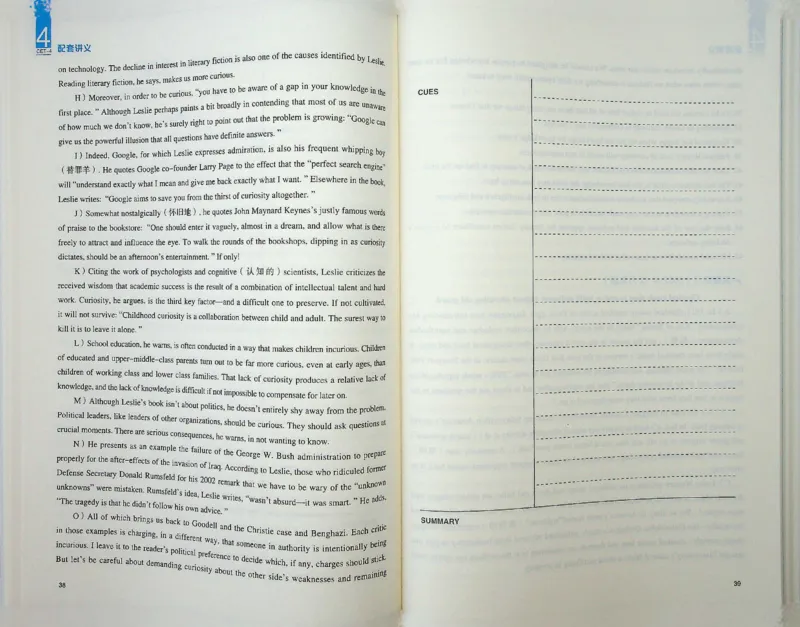 4
CET-4
配套讲义
on technology. The decline in interest in literary fiction is also one of the causes identified by Leslie.
Reading literary fiction, he says, makes us more curious.
H) Moreover, in order to be curious, "you have to be aware of a gap in your knowledge in the
first place. " Although Leslie perhaps paints a bit broadly in contending that most of us are unaware
of how much we don't know, he's surely right to point out that the problem is growing: "Google can
give us the powerful illusion that all questions have definite answers. "
I) Indeed, Google, for which Leslie expresses admiration, is also his frequent whipping boy
(替罪羊). He quotes Google co-founder Larry Page to the effect that the "perfect search engine"
will "understand exactly what I mean and give me back exactly what I want. " Elsewhere in the book,
Leslie writes: "Google aims to save you from the thirst of curiosity altogether. "
J) Somewhat nostalgically (怀旧地), he quotes John Maynard Keynes's justly famous words
of praise to the bookstore: "One should enter it vaguely, almost in a dream, and allow what is there
freely to attract and influence the eye. To walk the rounds of the bookshops, dipping in as curiosity
dictates, should be an afternoon's entertainment. " If only!
K) Citing the work of psychologists and cognitive (认知的) scientists, Leslie criticizes the
received wisdom that academic success is the result of a combination of intellectual talent and hard
work. Curiosity, he argues, is the third key factor—and a difficult one to preserve. If not cultivated,
it will not survive: "Childhood curiosity is a collaboration between child and adult. The surest way to
kill it is to leave it alone. "
L) School education, he warns, is often conducted in a way that makes children incurious. Children
of educated and upper-middle-class parents turn out to be far more curious, even at early ages, than
children of working class and lower class families. That lack of curiosity produces a relative lack of
knowledge, and the lack of knowledge is difficult if not impossible to compensate for later on.
M) Although Leslie's book isn't about politics, he doesn't entirely shy away from the problem.
Political leaders, like leaders of other organizations, should be curious. They should ask questions at
crucial moments. There are serious consequences, he warns, in not wanting to know.
N) He presents as an example the failure of the George W. Bush administration to prepare
properly for the after-effects of the invasion of Iraq. According to Leslie, those who ridiculed former
Defense Secretary Donald Rumsfeld for his 2002 remark that we have to be wary of the "unknown
unknowns" were mistaken. Rumsfeld's idea, Leslie writes, "wasn't absurd—it was smart. " He adds,
"The tragedy is that he didn't follow his own advice. "
O) All of which brings us back to Goodell and the Christie case and Benghazi. Each critic
in those examples is charging, in a different way, that someone in authority is intentionally being
incurious. I leave it to the reader's political preference to decide which, if any, charges should stick.
But let's be careful about demanding curiosity about the other side's weaknesses and remaining
38
CUES
SUMMARY
39